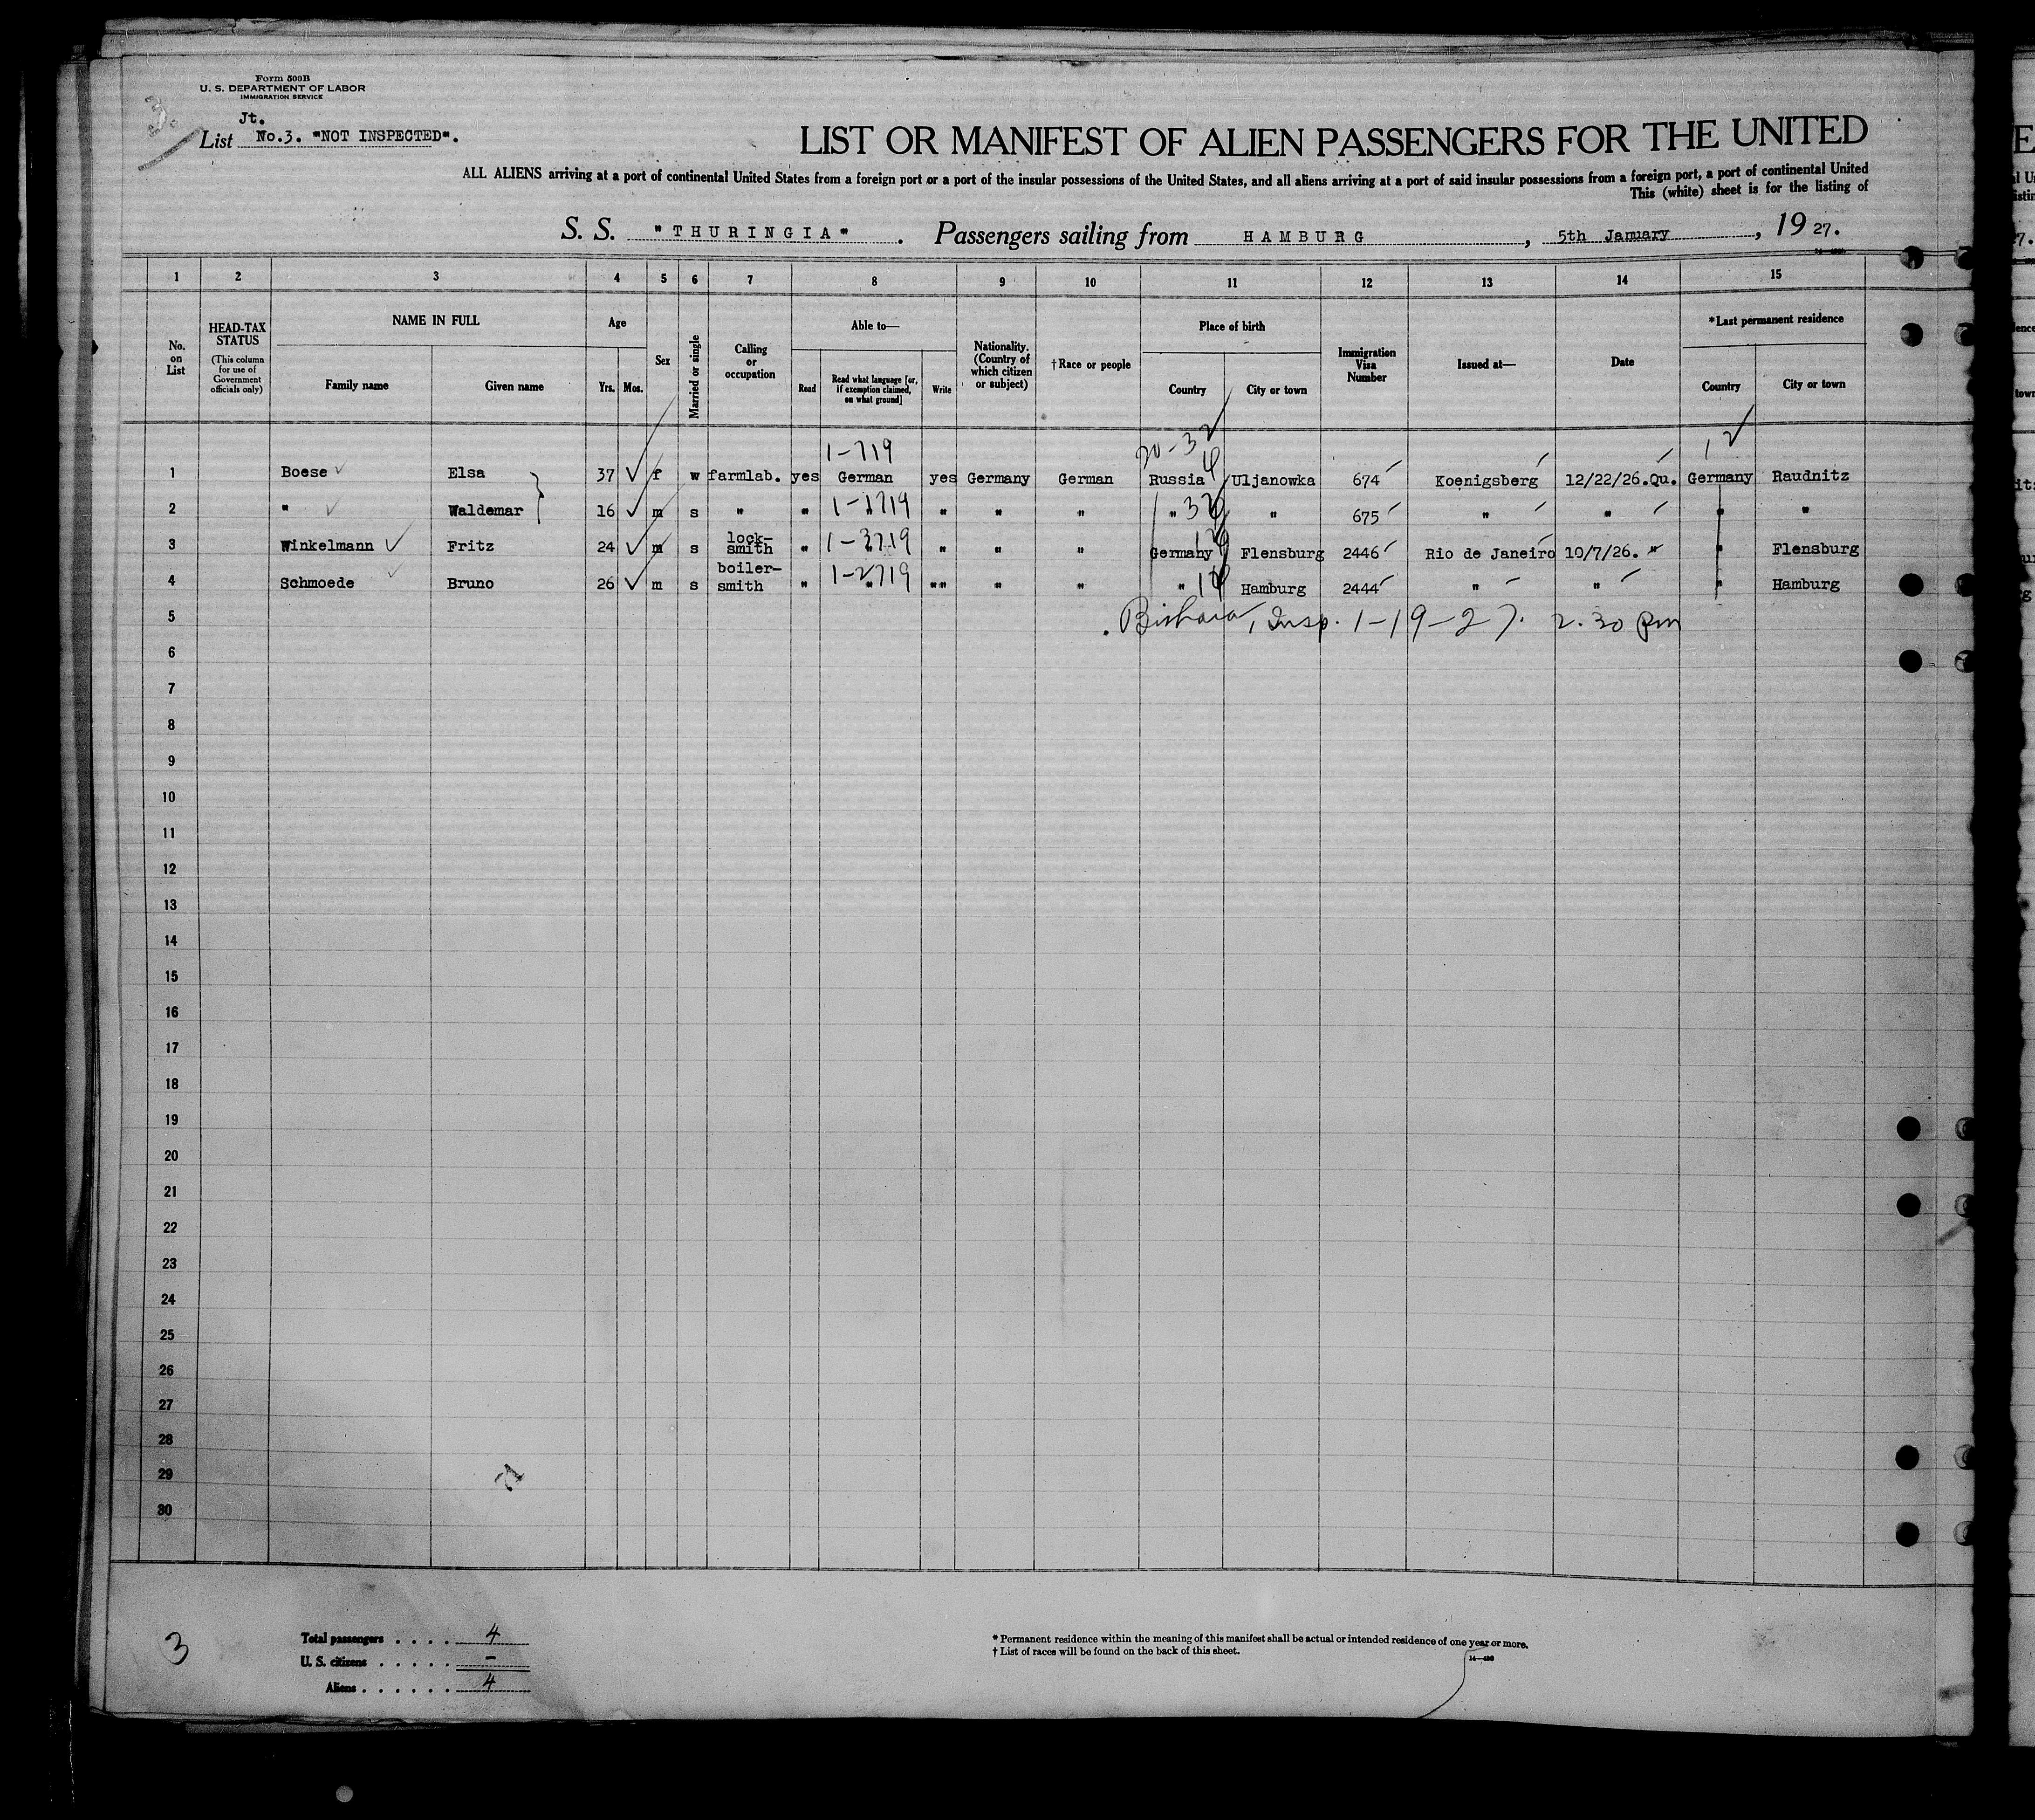 Form 500B
U. S. DEPARTMENT OF LABOR
IMMIGRATION SERVICE
3.
Jt.
List No.3. "NOT INSPECTED".
LIST OR MANIFEST OF ALIEN PASSENGERS FOR THE UNITED
ALL ALIENS arriving at a port of continental United States from a foreign port or a port of the insular possessions of the United States, and all aliens arriving at a port of said insular possessions from a foreign port, a port of continental United
This (white) sheet is for the listing of
S. S. "THURINGIA". Passengers sailing from HAMBURG, 5th January, 1927.
1 2 3 4 5 6 7 8 9 10 11 12 13 14 15
No. on List
HEAD-TAX STATUS
(This column for use of Government officials only)
NAME IN FULL
Family name Given name
Age
Yrs. Mos.
Sex
Married or single
Calling or occupation
Able to—
Read
Read what language [or, if exemption claimed, on what ground]
Write
Nationality. (Country of which citizen or subject)
†Race or people
Place of birth
Country City or town
Immigration Visa Number
Issued at—
Date
*Last permanent residence
Country City or town
1-719 20-32
1 Boese Elsa 37 f w farmlab. yes German yes Germany German Russia Uljanowka 674 Koenigsberg 12/22/26.Qu. Germany Raudnitz
2 " Waldemar 16 m s " " 1-1719 " " " " " 675 " " " "
3 Winkelmann Fritz 24 m s lock-smith " 1-3719 " " " Germany Flensburg 2446 Rio de Janeiro 10/7/26. " " Flensburg
4 Schmoede Bruno 26 m s boiler-smith " 1-2719 "" " " " Hamburg 2444 " " " Hamburg
5 Insp. 1-19-27. 2.30 pm
6
7
8
9
10
11
12
13
14
15
16
17
18
19
20
21
22
23
24
25
26
27
28
29
30
3
Total passengers .... 4
U. S. citizens ..... –
Aliens ...... 4
* Permanent residence within the meaning of this manifest shall be actual or intended residence of one year or more.
† List of races will be found on the back of this sheet.
14—480